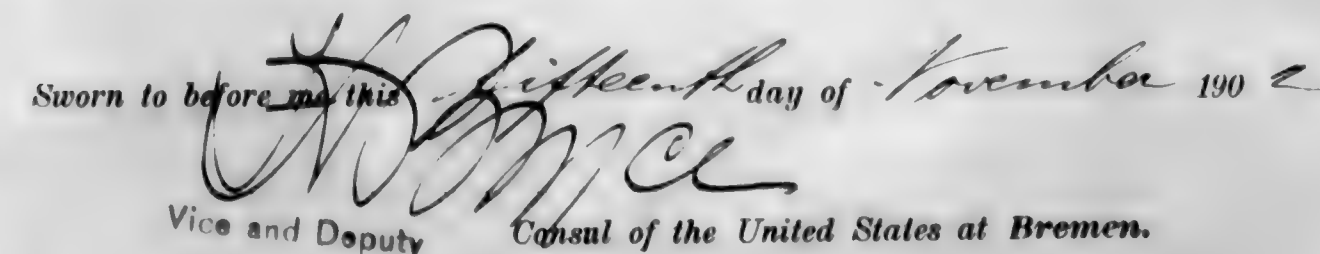 Sworn to before me this Fifteenth day of November 1902
Vice and Deputy Consul of the United States at Bremen.